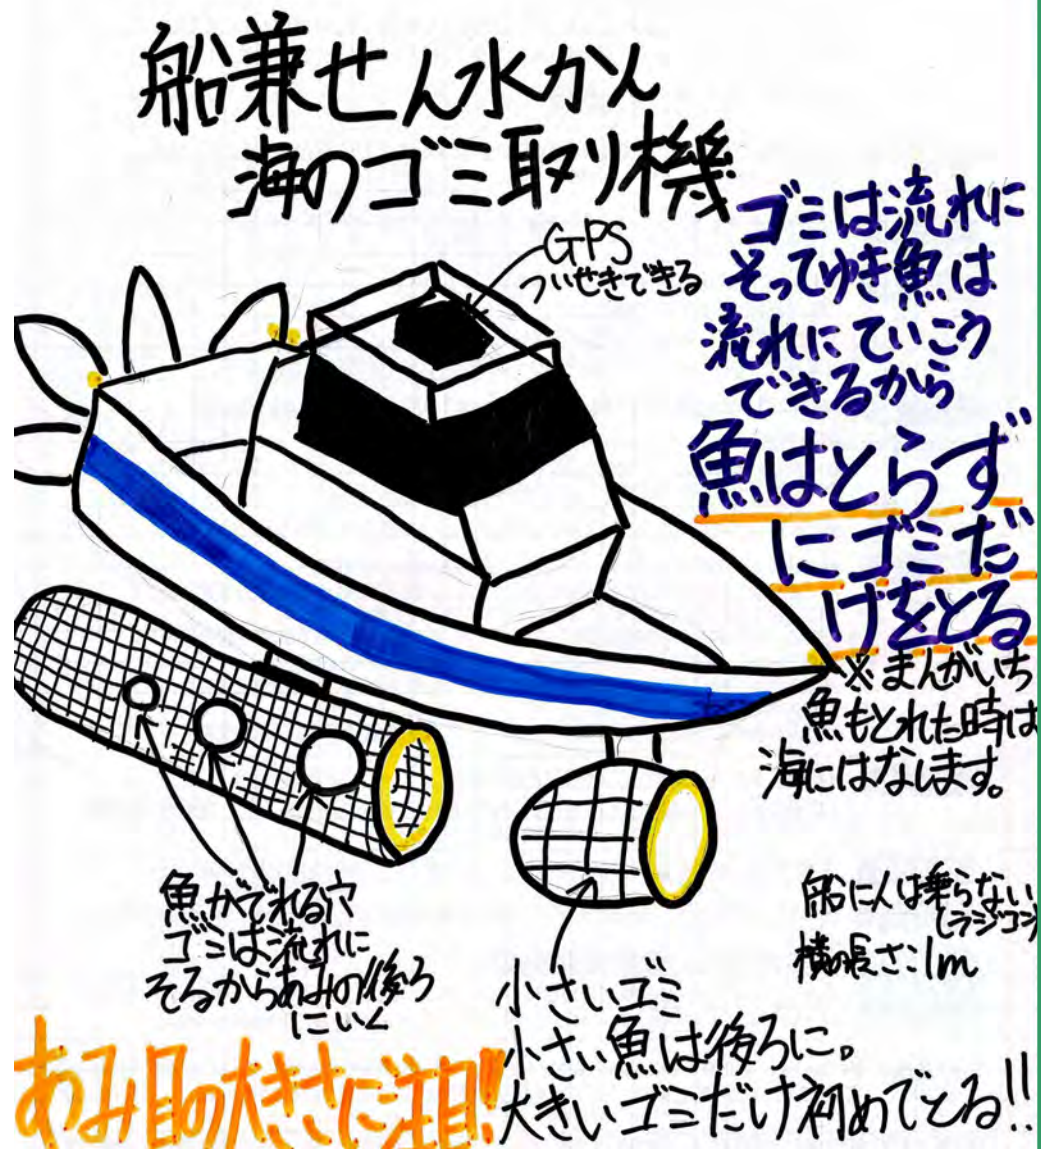 船兼せん水かん
海のゴミ取り機
GPS
ついせきできる
ゴミは流れに
そってゆき魚は
流れにていこう
できるから
魚はとらず
にゴミだ
けをとる
※まんがいち
魚もとれた時は
海にはなします。
船に人は乗らない
(ラジコン)
横の長さ:1m
魚がでれる穴
ゴミは流れに
そるからあみの後ろ
にいく
小さいゴミ
小さい魚は後ろに。
大きいゴミだけ初めでとる!!
あみ目の大きさに注目!!